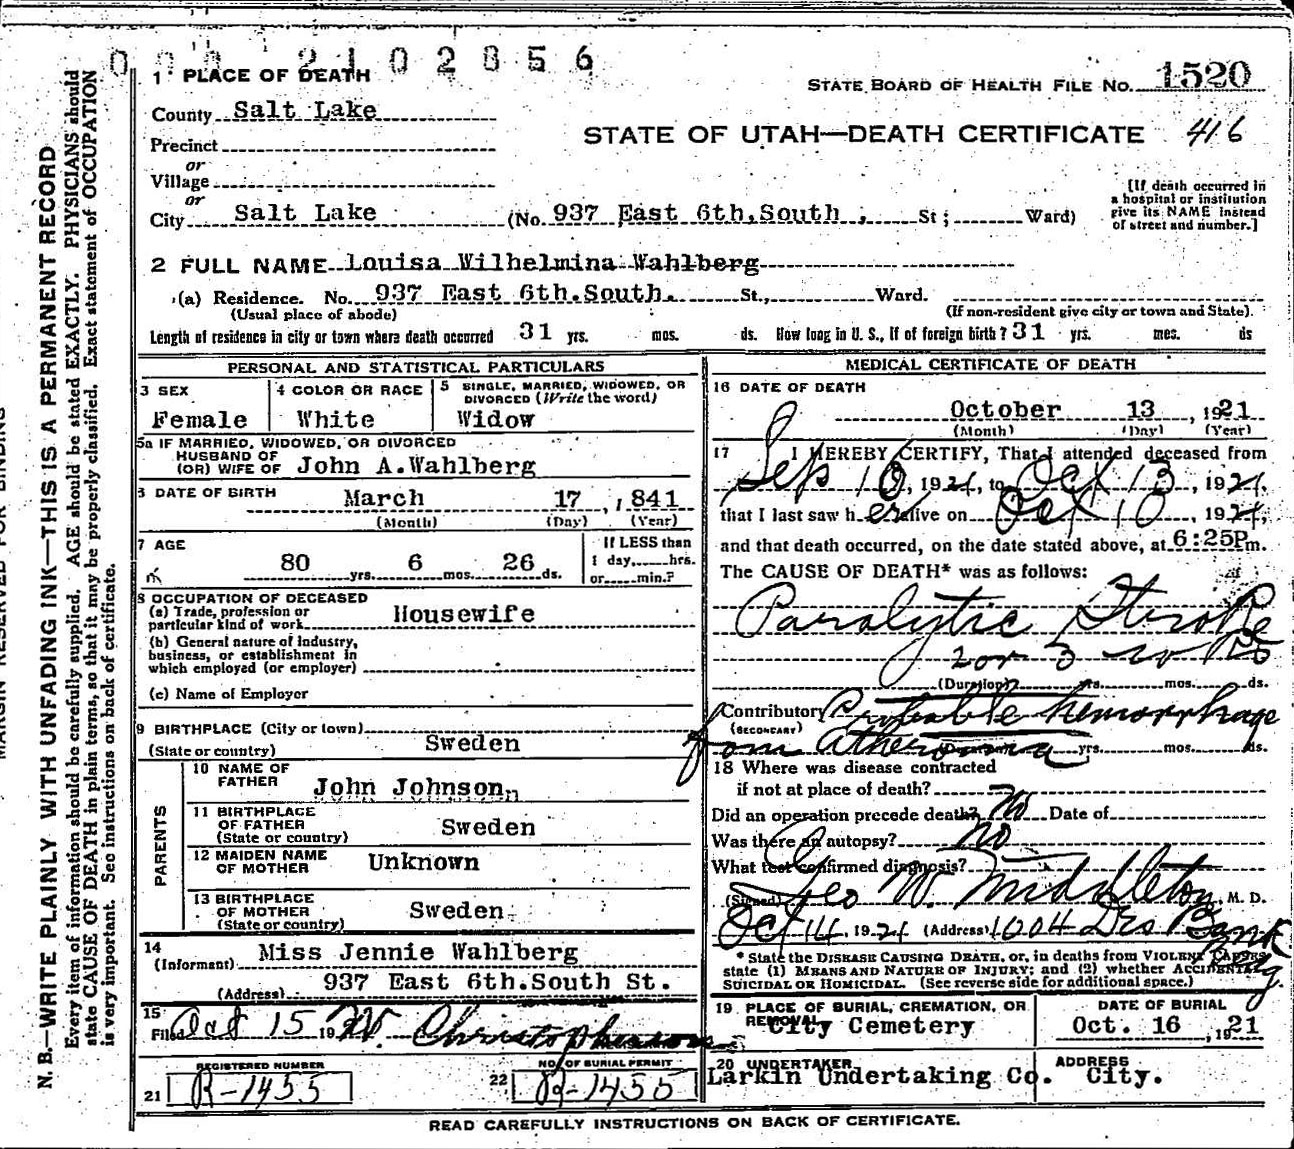 0 2102856
1 PLACE OF DEATH
STATE BOARD OF HEALTH FILE NO. 1520
County Salt Lake
STATE OF UTAH—DEATH CERTIFICATE 416
Precinct
or
Village
or
City Salt Lake (No. 937 East 6th.South , St; Ward)
[If death occurred in
a hospital or institution
give its NAME instead
of street and number.]
2 FULL NAME Louisa Wilhelmina Wahlberg
(a) Residence. No. 937 East 6th.South. St., Ward.
(Usual place of abode) (If non-resident give city or town and State).
Length of residence in city or town where death occurred 31 yrs. mos. ds. How long in U. S., If of foreign birth? 31 yrs. mos. ds
PERSONAL AND STATISTICAL PARTICULARS
3 SEX
Female
4 COLOR OR RACE
White
5 SINGLE, MARRIED, WIDOWED, OR
DIVORCED (Write the word)
Widow
5a IF MARRIED, WIDOWED, OR DIVORCED
HUSBAND OF
(OR) WIFE OF John A.Wahlberg
DATE OF BIRTH March 17 , 1841
(Month) (Day) (Year)
7 AGE
80 yrs. 6 mos. 26 ds.
If LESS than
1 day, hrs.
or min.?
8 OCCUPATION OF DECEASED
(a) Trade, profession or
particular kind of work Housewife
(b) General nature of industry,
business, or establishment in
which employed (or employer)
(c) Name of Employer
9 BIRTHPLACE (City or town)
(State or country) Sweden
PARENTS
10 NAME OF
FATHER John Johnson
11 BIRTHPLACE
OF FATHER
(State or country) Sweden
12 MAIDEN NAME
OF MOTHER Unknown
13 BIRTHPLACE
OF MOTHER
(State or country) Sweden
14
(Informant) Miss Jennie Wahlberg
(Address) 937 East 6th.South St.
15
Filed Oct 15 19 W. Christopherson
REGISTERED NUMBER
21 R-1455
NO. OF BURIAL PERMIT
22 B-1455
MEDICAL CERTIFICATE OF DEATH
16 DATE OF DEATH
October 13 , 1921
(Month) (Day) (Year)
17 I HEREBY CERTIFY, That I attended deceased from
Sep 10, 1921, to Oct 13, 1921,
that I last saw her alive on Oct 10, 1921,
and that death occurred, on the date stated above, at 6:25P m.
The CAUSE OF DEATH* was as follows:
Paralytic Stroke
2 or 3 wks
(Duration) yrs. mos. ds.
Contributory Probable hemorrhage
(SECONDARY)
from Atheroma yrs. mos. ds.
18 Where was disease contracted
if not at place of death?
Did an operation precede death? No Date of
Was there an autopsy? No
What test confirmed diagnosis?
(Signed) Geo W. Middleton, M. D.
Oct 14, 1921 (Address) 1004 Des Bank
Bldg.
* State the DISEASE CAUSING DEATH, or, in deaths from VIOLENT CAUSES
state (1) MEANS AND NATURE OF INJURY; and (2) whether ACCIDENTAL
SUICIDAL OR HOMICIDAL. (See reverse side for additional space.)
19 PLACE OF BURIAL, CREMATION, OR
REMOVAL
City Cemetery
DATE OF BURIAL
Oct. 16 , 1921
20 UNDERTAKER
Larkin Undertaking Co.
ADDRESS
City.
READ CAREFULLY INSTRUCTIONS ON BACK OF CERTIFICATE.
MARGIN RESERVED FOR BINDING
N. B.—WRITE PLAINLY WITH UNFADING INK—THIS IS A PERMANENT RECORD
Every item of information should be carefully supplied. AGE should be stated EXACTLY. PHYSICIANS should
state CAUSE OF DEATH in plain terms, so that it may be properly classified. Exact statement of OCCUPATION
is very important. See instructions on back of certificate.